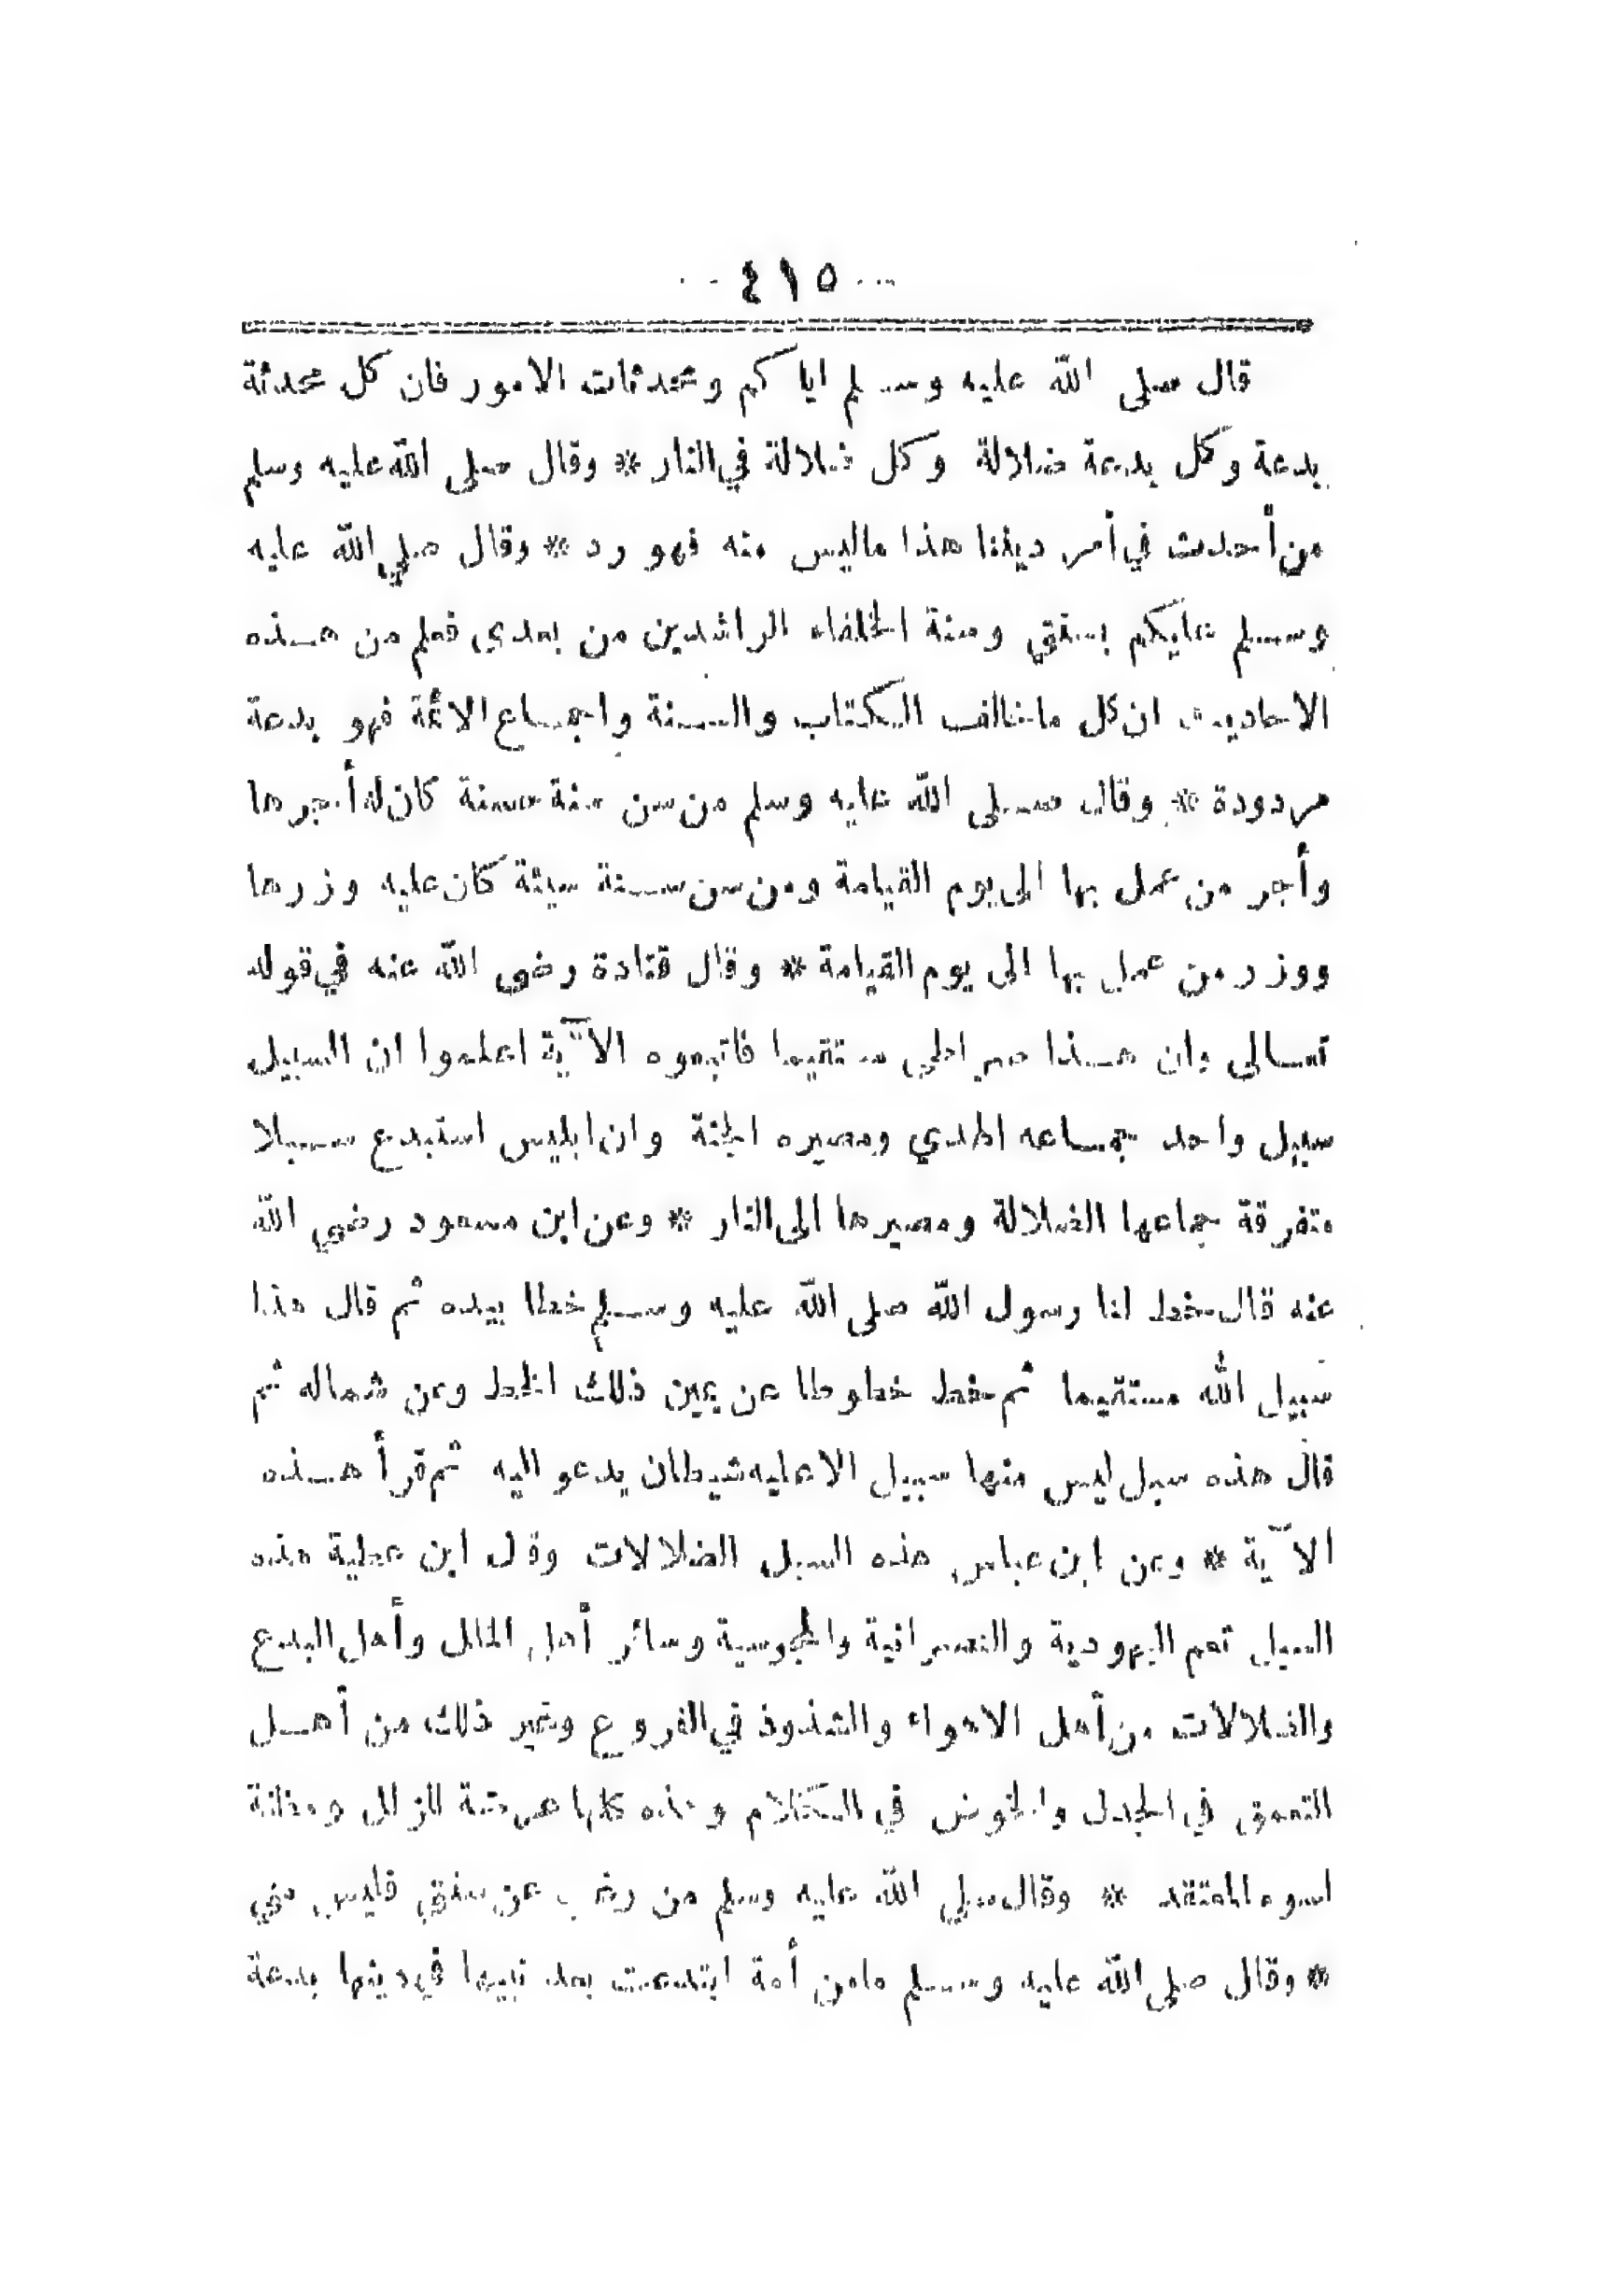 ٤١٥
قال صلى الله عليه وسلم اياكم ومحدثات الامور فان كل محدثة
بدعة وكل بدعة ضلالة وكل ضلالة في النار * وقال صلى الله عليه وسلم
من أحدث في أمر ديننا هذا ماليس منه فهو رد * وقال صلي الله عليه
وسلم عليكم بسنتي وسنة الخلفاء الراشدين من بعدي فعلم من هذه
الاحاديث ان كل ماخالف الكتاب والسنة واجماع الائمة فهو بدعة
مردودة * وقال صلى الله عليه وسلم من سن سنة حسنة كان له أجرها
وأجر من عمل بها الى يوم القيامة ومن سن سنة سيئة كان عليه وزرها
ووزر من عمل بها الى يوم القيامة * وقال قتادة رضي الله عنه في قوله
تعالى وان هذا صراطي مستقيما فاتبعوه الآية اعلموا ان السبيل
سبيل واحد جماعه الهدي ومصيره الجنة وان ابليس استبدع سبلا
متفرقة جماعها الضلالة ومصيرها الى النار * وعن ابن مسعود رضي الله
عنه قال خط لنا رسول الله صلى الله عليه وسلم خطا بيده ثم قال هذا
سبيل الله مستقيما ثم خط خطوطا عن يمين ذلك الخط وعن شماله ثم
قال هذه سبل ليس منها سبيل الا عليه شيطان يدعو اليه ثم قرأ هذه
الآية * وعن ابن عباس هذه السبل الضلالات وقال ابن عطية هذه
السبل تعم اليهودية والنصرانية والمجوسية وسائر أهل الملل وأهل البدع
والضلالات من أهل الاهواء والشذوذ في الفروع وغير ذلك من أهل
التعمق في الجدل والخوض في الكلام وهذه كلها عرضة للزلل ومظنة
لسوء المعتقد * وقال صلي الله عليه وسلم من رغب عن سنتي فليس مني
* وقال صلى الله عليه وسلم مامن أمة ابتدعت بعد نبيها في دينها بدعة